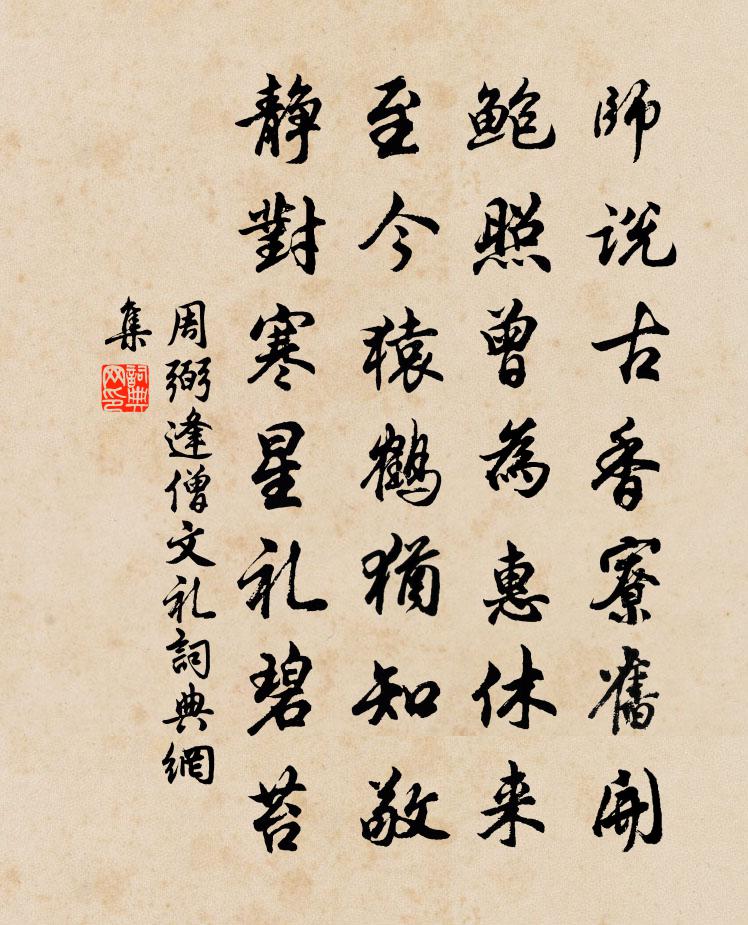 師説古香寮舊開
鮑照曾為惠休来
至今猿鶴猶知敬
静對寒星礼碧苔
周弼逢僧文礼詞典網
集
詞典
网印